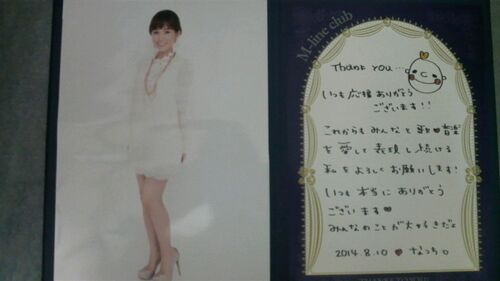 M-line club
Thank you...
いつも応援ありがとう
ございます!!
これからもみんなと歌♥音楽
を愛して表現し続ける
私をよろしくお願いします!
いつも本当にありがとう
ございます♥
みんなのことが大好きだよ
2014.8.10 ♥ なっち。